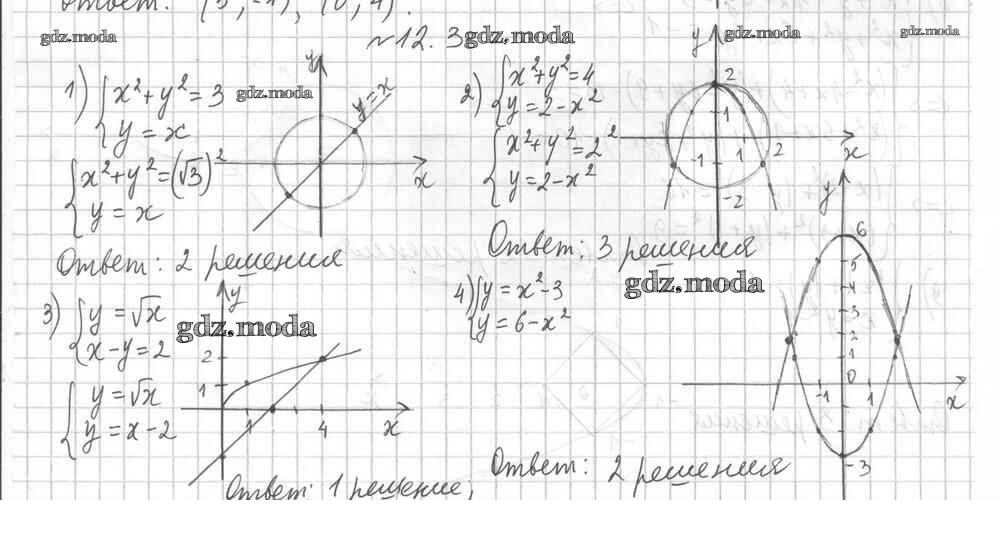 Ответ: (3; -1), (0; 4).
gdz.moda
№12.3
gdz.moda
gdz.moda
gdz.moda
1) {x²+y²=3
y=x
gdz.moda
{x²+y²=(√3)²
y=x
y
y=x
x
Ответ: 2 решения
2) {x²+y²=4
y=2-x²
{x²+y²=2²
y=2-x²
y
2
1
-1
1
2
-2
x
Ответ: 3 решения
gdz.moda
3) {y=√x
x-y=2
gdz.moda
{y=√x
y=x-2
y
2
1
1
4
x
Ответ: 1 решение,
4) {y=x²-3
y=6-x²
y
6
5
4
3
2
1
0
-1
1
x
-3
Ответ: 2 решения